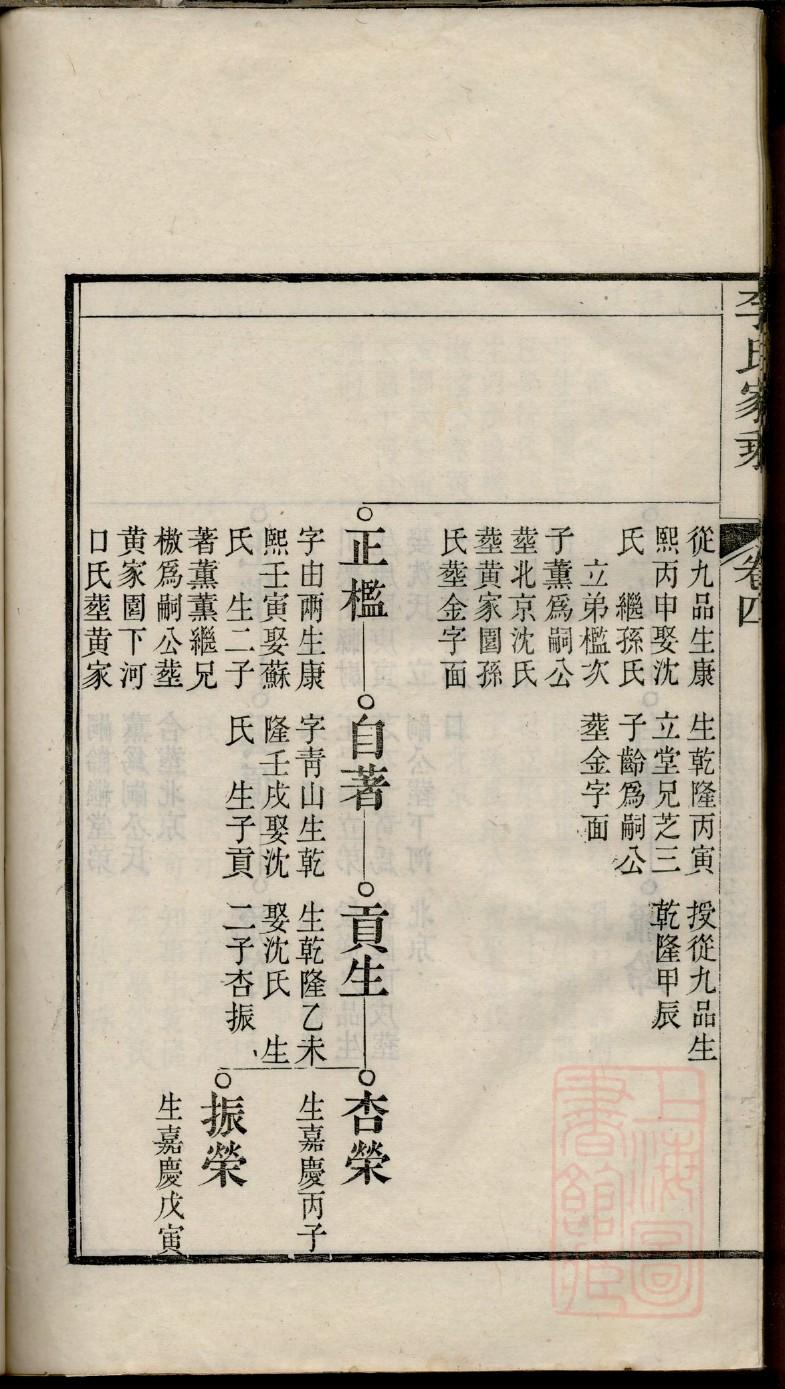 李氏家乘
卷四
從九品生康
熙丙申娶沈
氏　繼孫氏
　立弟檻次
子薰爲嗣公
塟北京沈氏
塟黃家圍孫
氏塟金字面
生乾隆丙寅
立堂兄芝三
子齡爲嗣公
塟金字面
授從九品生
乾隆甲辰
正檻
字由兩生康
熙壬寅娶蘇
氏　生二子
著薰薰繼兄
檄爲嗣公塟
黃家圍下河
口氏塟黃家
自著
字青山生乾
隆壬戌娶沈
氏　生子貢
貢生
生乾隆乙未
娶沈氏　生
二子杏振
杏榮
生嘉慶丙子
振榮
生嘉慶戊寅
上海圖書館藏